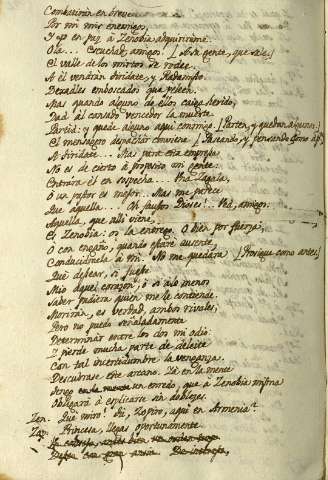 Combatirán en breve
Por mi mis enemigos,
Y yo en paz á Zenobia adquiriréme.
Ola... Escuchad, amigos! [A su gente, que sale.]
El valle de los mirtos se rodee.
A él vendrán Tiridate, y Radamisto.
Dexadles emboscados que peleen.
Mas quando alguno de ellos caiga herido,
Dad al cansado vencedor la muerte.
Partid: y quede alguno aqui conmigo. [Parten, y quedan algunos.]
El mensagero despachar conviene [Paseando, y pensando como ap.]
A Tiridate... Mas para esta empresa
No es de cierto á proposito mi gente.
Entrará él en sospecha... Una Zagala,
O un pastor es mejor... Mas me parece
Que aquella... Oh faustos Dioses!.. Ved, amigos.
Aquella, que alli viene,
Es Zenobia: os la entrego. O bien por fuerza,
O con engaño, quando estaré ausente,
Conducidmela á mi. No me quedára [Prosigue como antes.]
Que desear, si fuese
Mio aquel corazon; ó si á lo menos
Saber pudiera quien me le contiende.
Morirán, es verdad, ambos rivales;
Pero no puedo señaladamente
Determinar entre los dos mi odio:
I pierde mucha parte de deleite
Con tal incertidumbre la venganza.
Descubrase este arcano. Ya en la mente
Tengo un enredo, que á Zenobia misma
Obligará á esplicarse sin dobleces.
Zen. Que miro! Tu, Zopiro, aqui en Armenia?
Zop. Princesa, llegas oportunamente